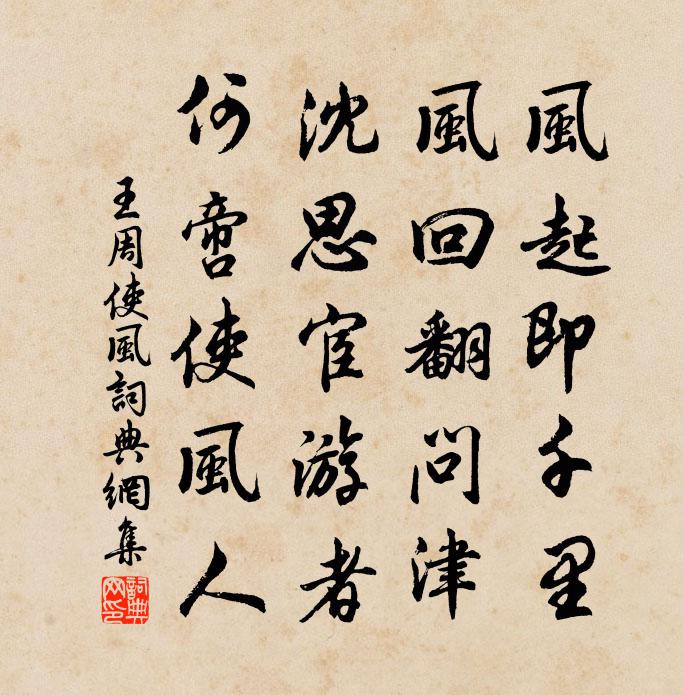 風起即千里
風回翻問津
沈思宦游者
何啻使風人
王周使風詞典網集
詞典網印